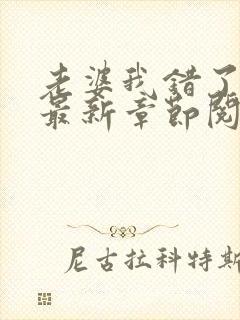 老婆我错了
最新章节阅
尼古拉科特斯